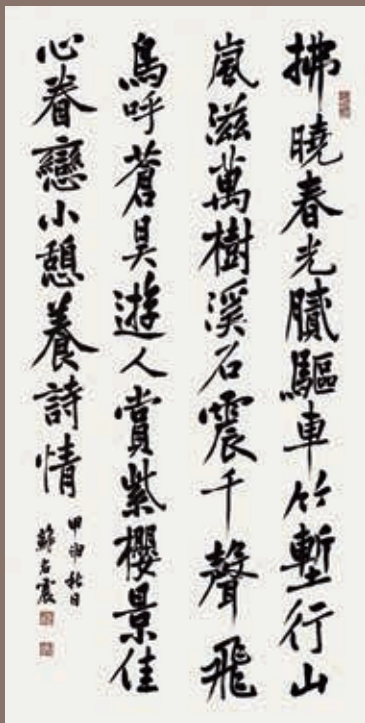 拂曉春光膩驅車竹塹行山
嵐滋萬樹溪石震千聲飛
鳥呼蒼昊遊人賞紫櫻景佳
心眷戀小憩養詩情
甲申秋日
震